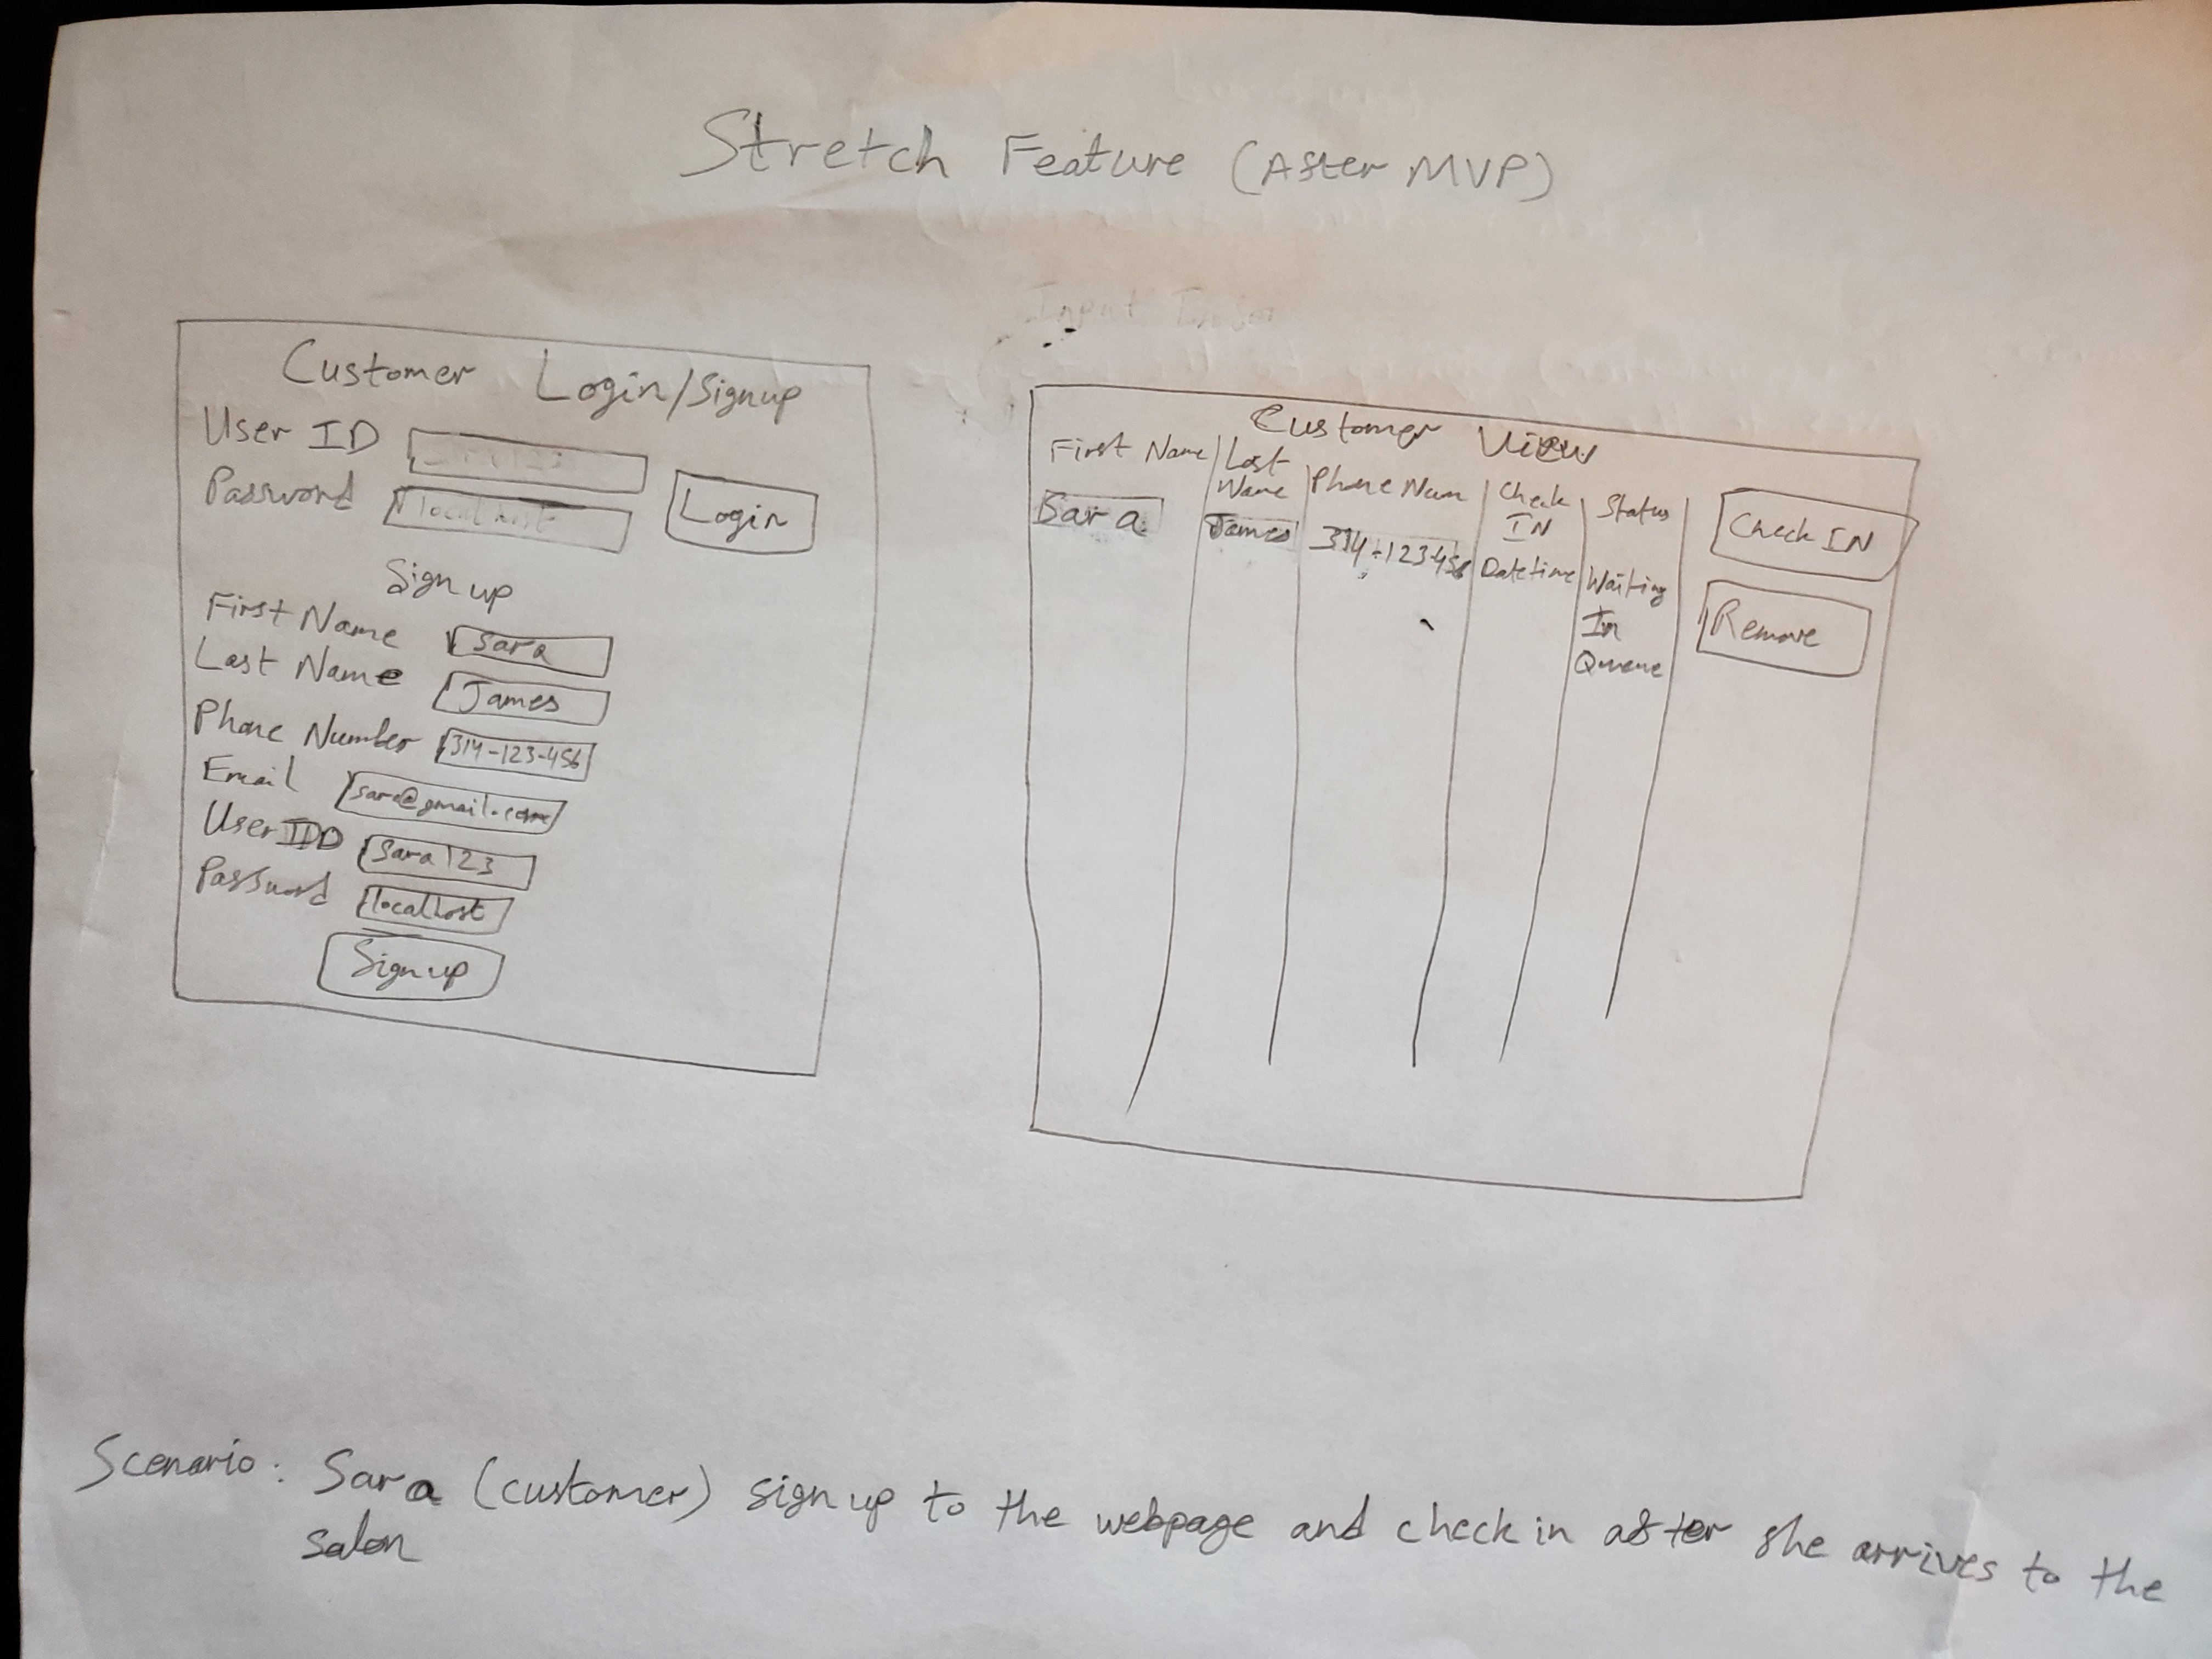 Stretch Feature (After MVP)
Customer Login/Signup
User ID
Password
Login
Sign up
First Name Sara
Last Name James
Phone Number 314-123-456
Email sara@gmail.com
User ID Sara123
Password localhost
Sign up
Customer View
First Name Last Name Phone Num Check IN Status Check IN
Sara James 314-123456 Datetime Waiting In Queue Remove
Scenario: Sara (customer) sign up to the webpage and check in after she arrives to the
salon